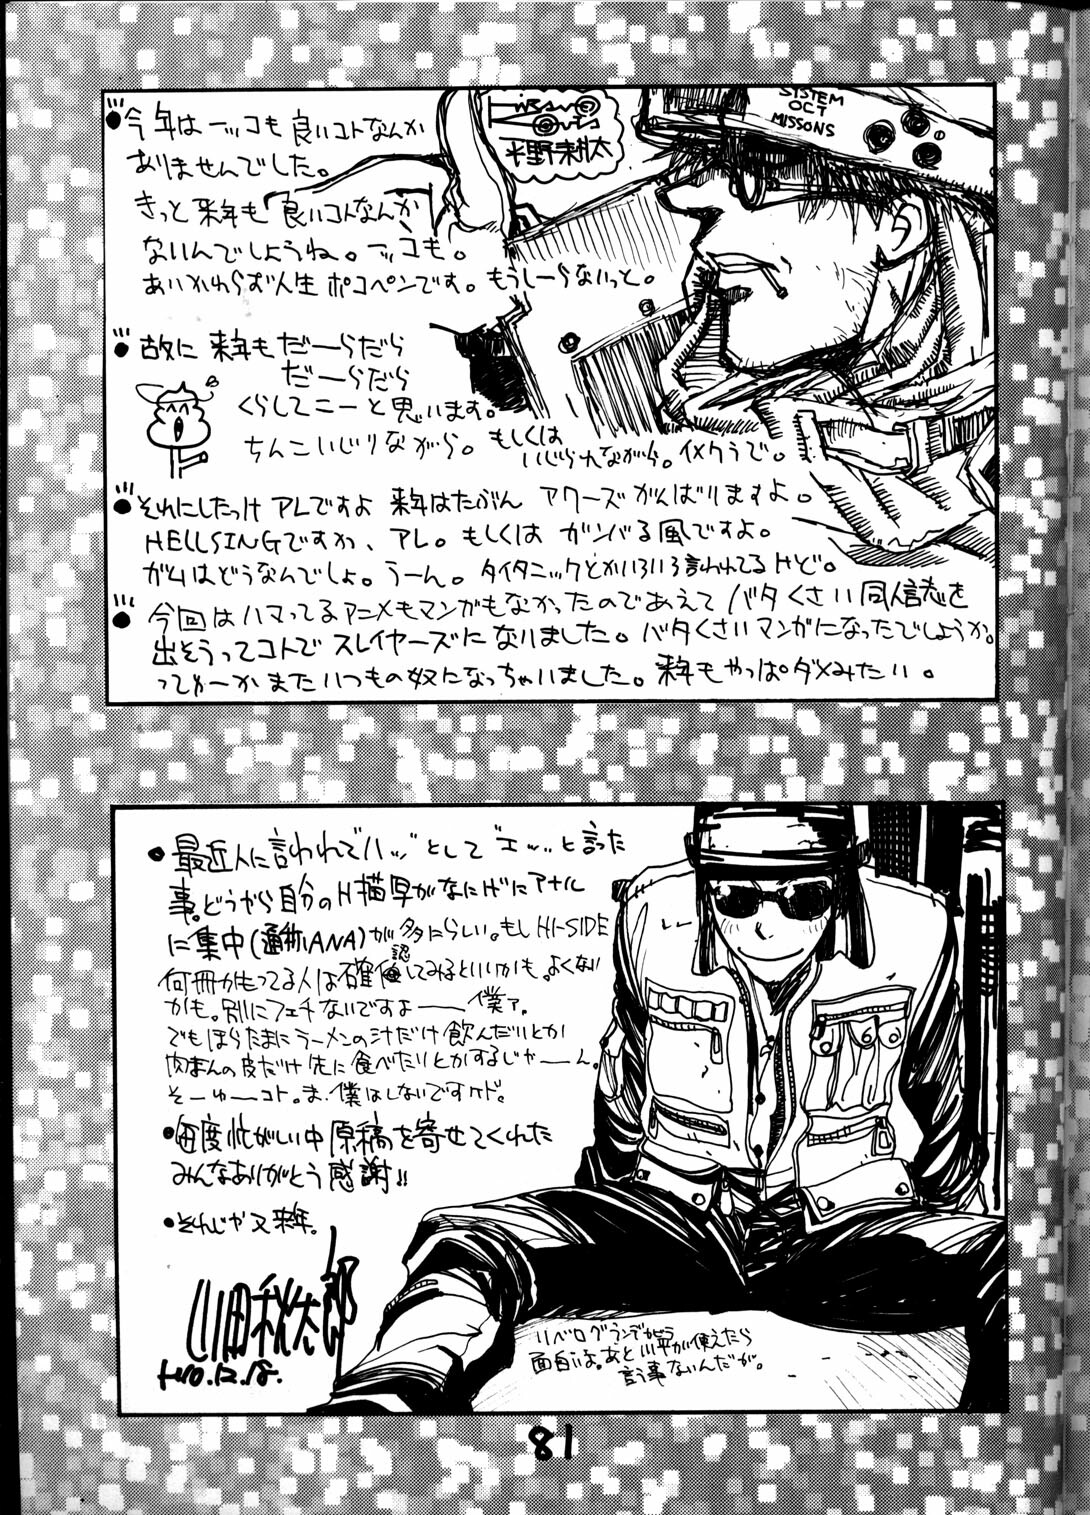 SYSTEM
OCT
MISSONS
平野耕太
今年は一ッコも良いコトなんか
ありませんでした。
きっと来年も「良いコトなんか」
ないんでしょうね。一ッコも。
あいかわらず人生ポコペンです。もうしーらないっと。
故に来年もだーらだら
だーらだら
くらしてこーと思います。
ちんこいじりながら。もしくは
いじられながら。イメクラで。
それにしたっけアレですよ来年はたぶんアワーズがんばりますよ。
HELLSINGですか、アレ。もしくはガンバる風ですよ。
ガムはどうなんでしょ。うーん。タイタニックとかいろいろ言われてるけど。
今回はハマってるアニメもマンガもなかったのであえてバタくさい同人誌を
出そうってコトでスレイヤーズになりました。バタくさいマンガになったでしょうか。
ってゆーかまたいつもの奴になっちゃいました。来年もやっぱダメみたい。
最近人に言われて"ハッ"として"エッ"と言った
事。どうやら自分のH描写がなにげにアナル
に集中(通称ANA)が多いらしい。もしHI-SIDE
何冊かもってる人は確認してみるといいかも。よくない
かも。別にフェチないですよー僕ァ。
でもほらたまにラーメンの汁だけ飲んだりとか
肉まんの皮だけ先に食べたりとかするじゃーん。
そーゆーコト。ま、僕はしないですケド。
毎度忙がしい中原稿を寄せてくれた
みんなありがとう感謝!!
それじゃ又来年。
山田秋太郎
H10.12.18.
リベログランデが
面白いよ。あと川平が使えたら
言う事ないんだが。
81